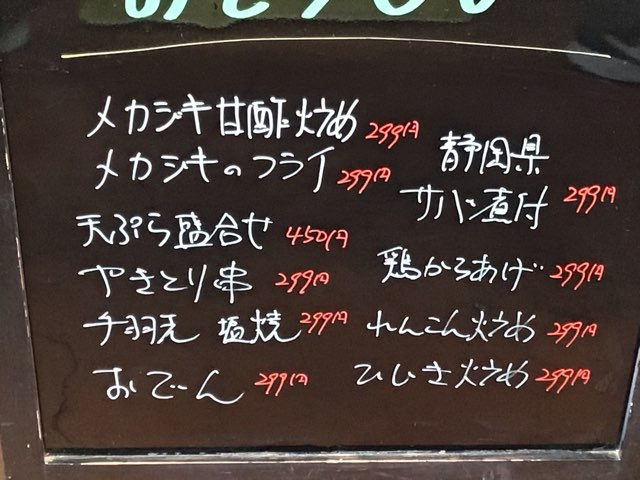 メカジキ甘酢炒め 299円
メカジキのフライ 299円
天ぷら盛合せ 450円
やきとり串 299円
手羽先 塩焼 299円
おでん 299円
静岡県
サバ煮付 299円
鶏からあげ 299円
れんこん炒め 299円
ひじき炒め 299円